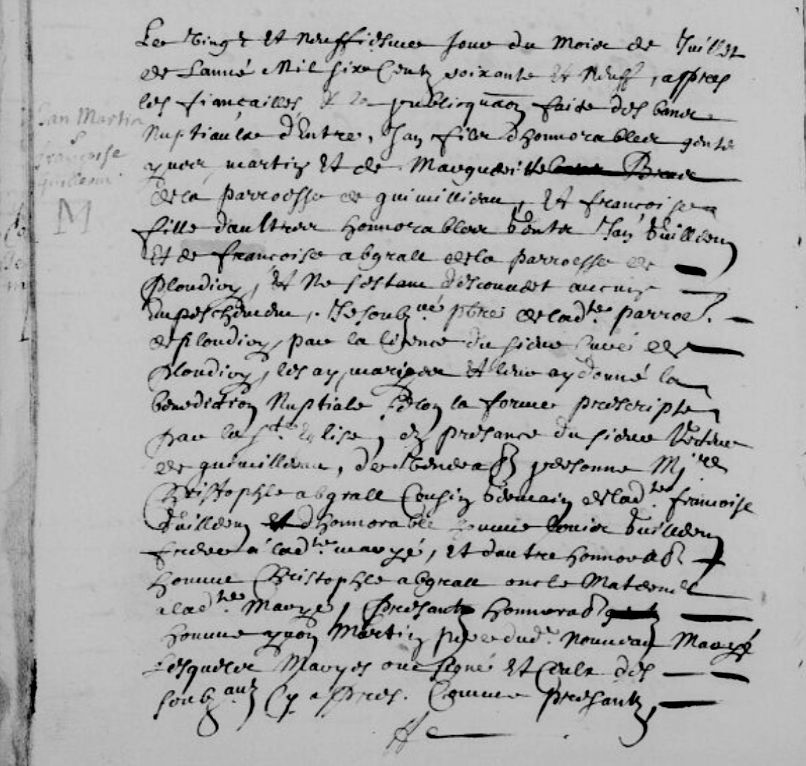 Jan Martin
&
françoise
Guillerm
M
Le Vingt et Neuffiesme Jour du Mois de Juillet
de Lanné Mil six Centz soixante et Neuff, appres
les fiançailles & la publicquaon faite des bans
Nuptiaulx d'Entre, Jan fils d'honnorables gents
yvon martin Et de Margueritte
de la parroesse de guimilliau, Et françoise
fille d'aultres honnorables gents Jan Guillerm
Et de françoise abgrall de la parroesse de
Ploudiry, et Ne s'estant descouvert aucuns
Empeschement, Je soubné pbre de ladte parroe.
de Ploudiry, par la licence du sieur curé de
Ploudiry, les ay maryés et leur ay donné la
benediction Nuptiale selon la forme prescripte
par la Ste Eglise, en presance du sieur Recteur
de guimilliau, de personne Mire
Christophle abgrall Cousin Germain de ladte françoise
Guillerm et d'honnorable homme Guillerm
frere à ladte maryé, Et d'autre honnorable
homme Christophle abgrall oncle Maternel
a ladte Maryé, Presantz honnorable
homme yvon Martin pere dud. Nouveau Maryé
Lesquels Maryes ont signé Et Ceulx des
soubantz Cy appres. Comme Presantz,